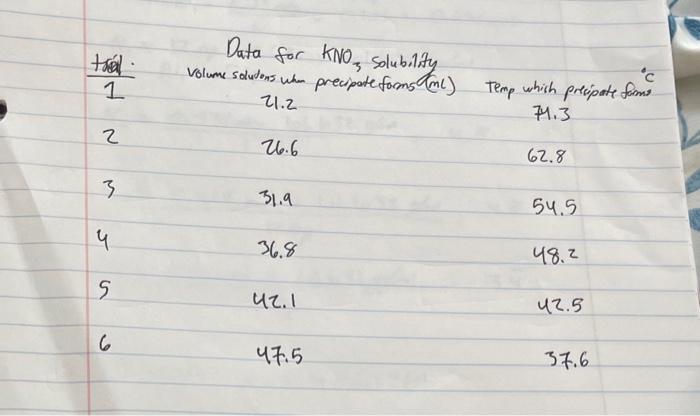 Data for KNO3 Solubility
trial. Volume solutions when precipate forms (mL) Temp which precipate forms °C
1 21.2 71.3
2 26.6 62.8
3 31.9 54.5
4 36.8 48.2
5 42.1 42.5
6 47.5 37.6